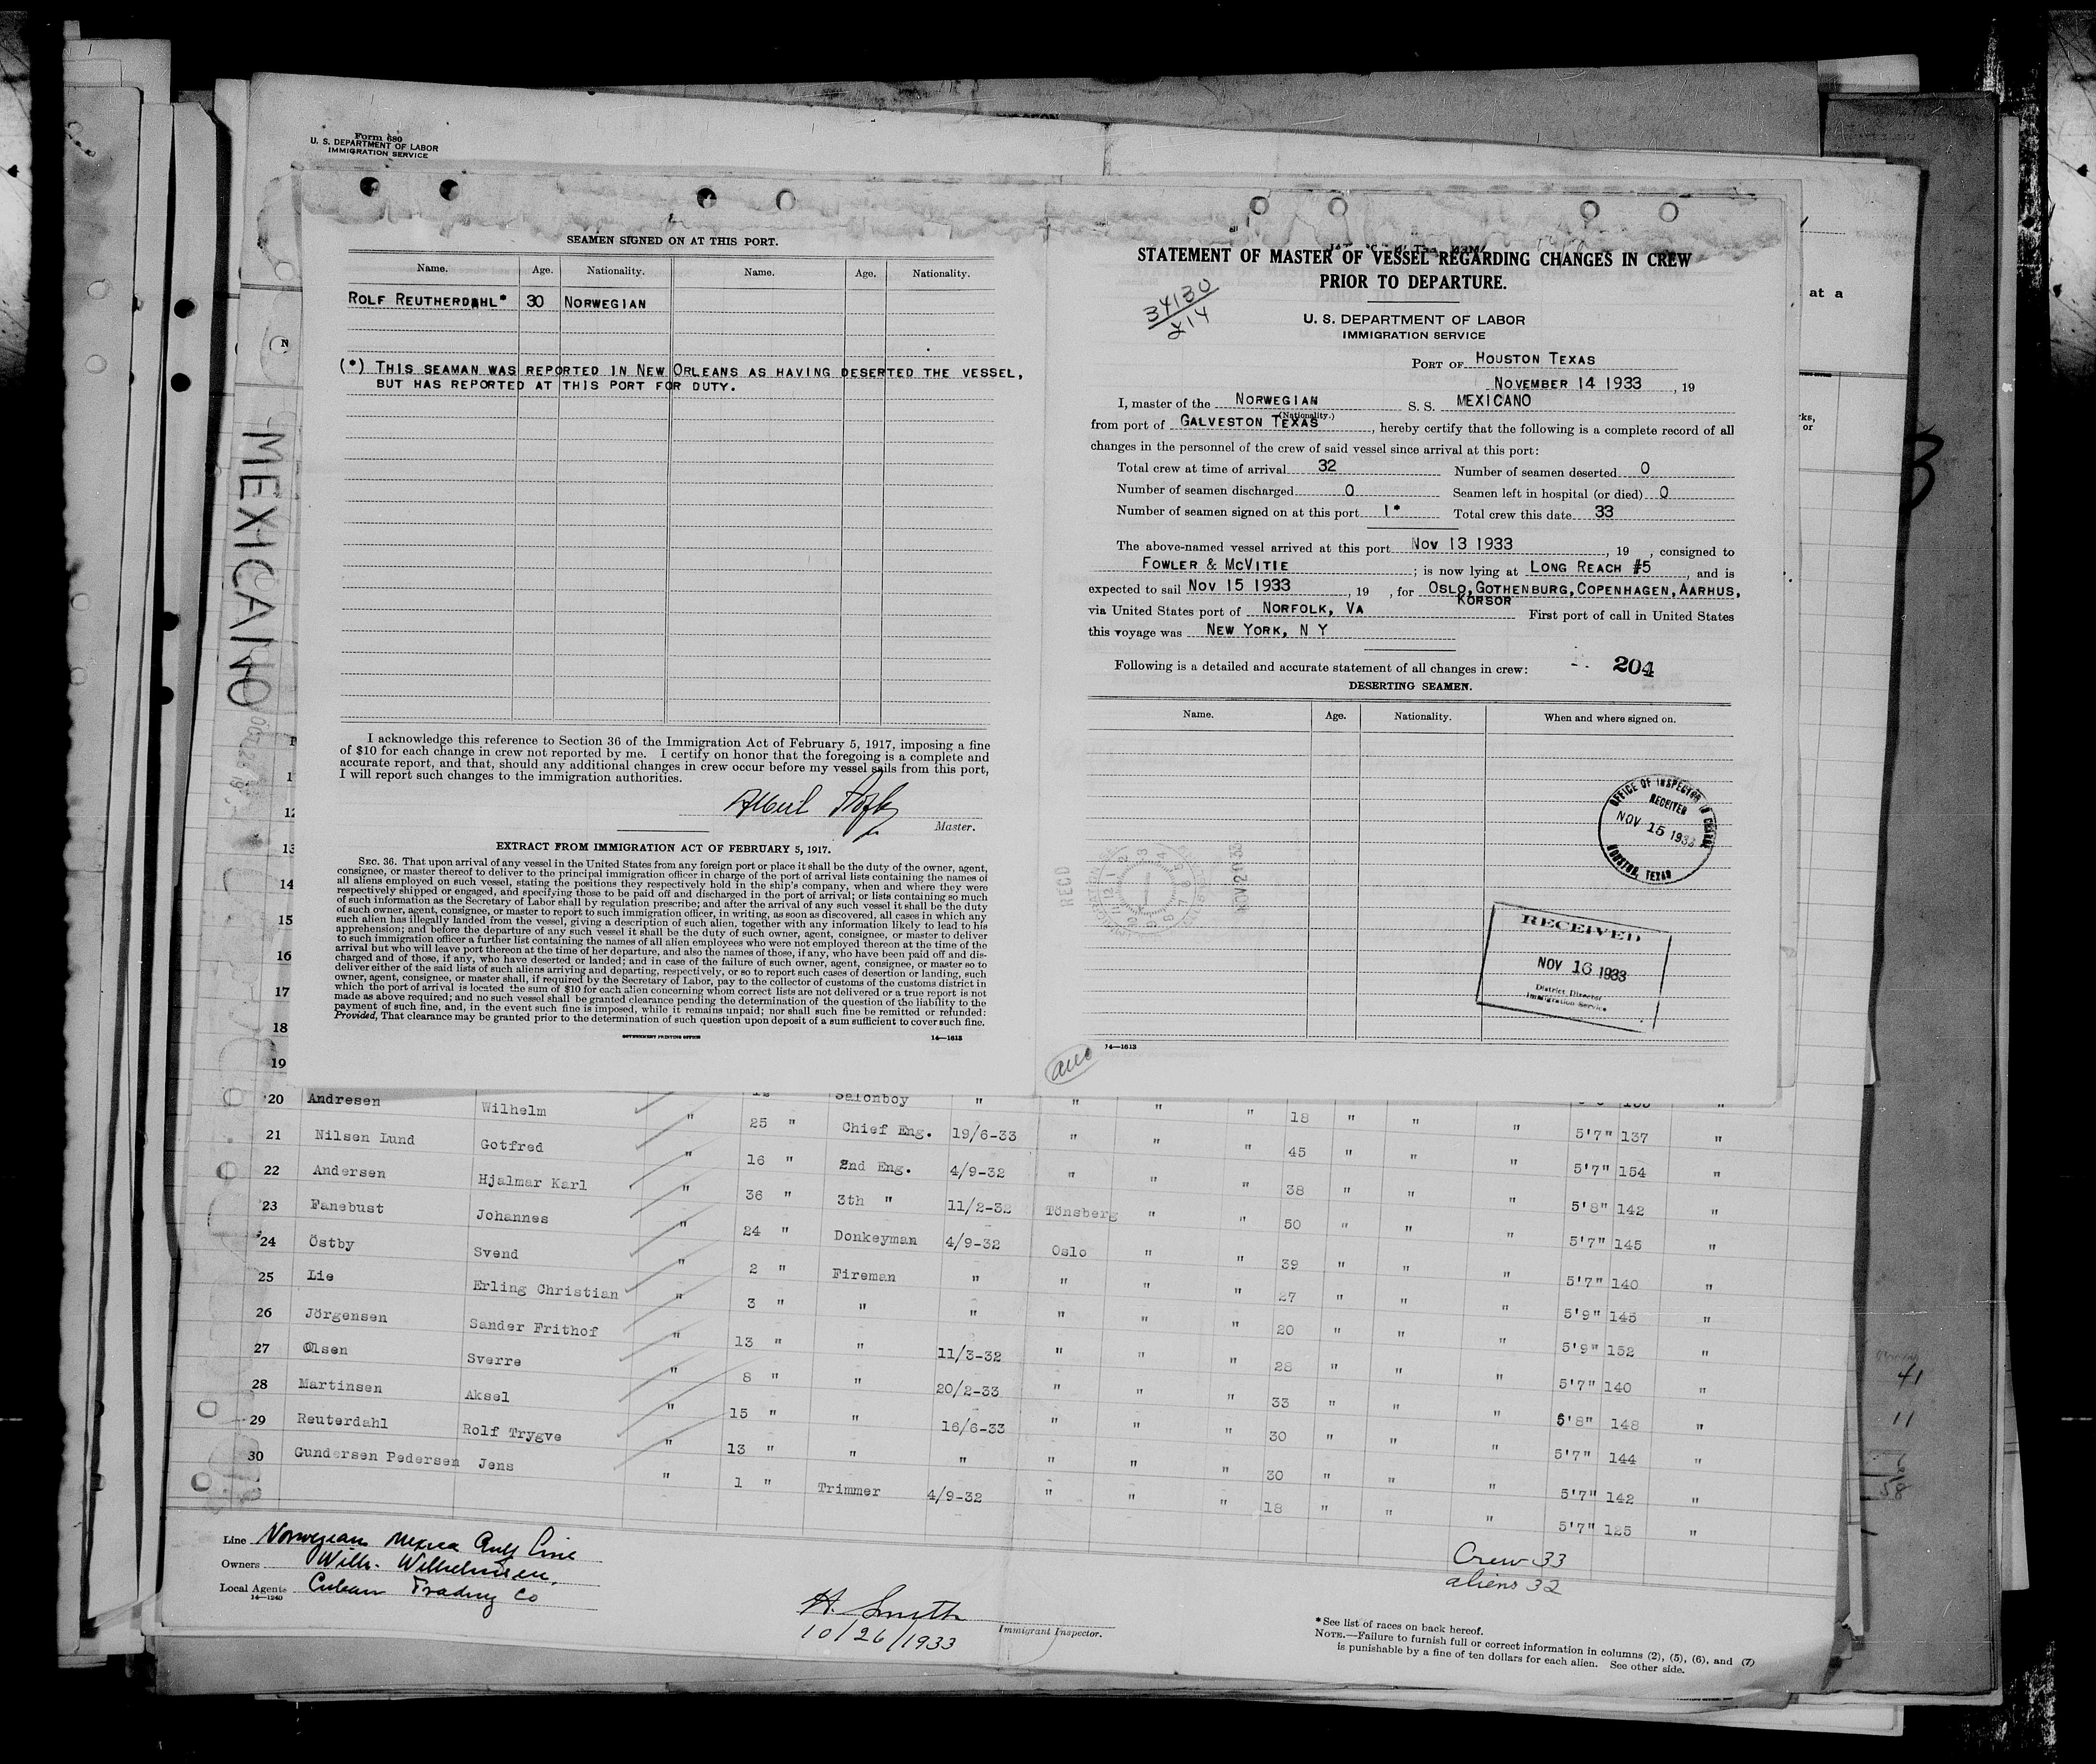 Form 680
U. S. DEPARTMENT OF LABOR
IMMIGRATION SERVICE
MEXICANO
SEAMEN SIGNED ON AT THIS PORT.
Name. Age. Nationality. Name. Age. Nationality.
ROLF REUTHERDAHL* 30 NORWEGIAN
(*) THIS SEAMAN WAS REPORTED IN NEW ORLEANS AS HAVING DESERTED THE VESSEL,
BUT HAS REPORTED AT THIS PORT FOR DUTY.
I acknowledge this reference to Section 36 of the Immigration Act of February 5, 1917, imposing a fine
of $10 for each change in crew not reported by me. I certify on honor that the foregoing is a complete and
accurate report, and that, should any additional changes in crew occur before my vessel sails from this port,
I will report such changes to the immigration authorities.
Master.
EXTRACT FROM IMMIGRATION ACT OF FEBRUARY 5, 1917.
SEC. 36. That upon arrival of any vessel in the United States from any foreign port or place it shall be the duty of the owner, agent,
consignee, or master thereof to deliver to the principal immigration officer in charge of the port of arrival lists containing the names of
all aliens employed on such vessel, stating the positions they respectively hold in the ship's company, when and where they were
respectively shipped or engaged, and specifying those to be paid off and discharged in the port of arrival; or lists containing so much
of such information as the Secretary of Labor shall by regulation prescribe; and after the arrival of any such vessel it shall be the duty
of such owner, agent, consignee, or master to report to such immigration officer, in writing, as soon as discovered, all cases in which any
such alien has illegally landed from the vessel, giving a description of such alien, together with any information likely to lead to his
apprehension; and before the departure of any such vessel it shall be the duty of such owner, agent, consignee, or master to deliver
to such immigration officer a further list containing the names of all alien employees who were not employed thereon at the time of the
arrival but who will leave port thereon at the time of her departure, and also the names of those, if any, who have been paid off and dis-
charged and of those, if any, who have deserted or landed; and in case of the failure of such owner, agent, consignee, or master so to
deliver either of the said lists of such aliens arriving and departing, respectively, or so to report such cases of desertion or landing, such
owner, agent, consignee, or master shall, if required by the Secretary of Labor, pay to the collector of customs of the customs district in
which the port of arrival is located the sum of $10 for each alien concerning whom correct lists are not delivered or a true report is not
made as above required; and no such vessel shall be granted clearance pending the determination of the question of the liability to the
payment of such fine, and, in the event such fine is imposed, while it remains unpaid; nor shall such fine be remitted or refunded:
Provided, That clearance may be granted prior to the determination of such question upon deposit of a sum sufficient to cover such fine.
GOVERNMENT PRINTING OFFICE 14—1613
STATEMENT OF MASTER OF VESSEL REGARDING CHANGES IN CREW
PRIOR TO DEPARTURE.
34130
214
U. S. DEPARTMENT OF LABOR
IMMIGRATION SERVICE
PORT OF HOUSTON TEXAS
NOVEMBER 14 1933, 19
I, master of the NORWEGIAN S. S. MEXICANO
(Nationality.)
from port of GALVESTON TEXAS, hereby certify that the following is a complete record of all
changes in the personnel of the crew of said vessel since arrival at this port:
Total crew at time of arrival 32 Number of seamen deserted 0
Number of seamen discharged 0 Seamen left in hospital (or died) 0
Number of seamen signed on at this port 1* Total crew this date 33
The above-named vessel arrived at this port Nov 13 1933, 19 , consigned to
FOWLER & MCVITIE; is now lying at LONG REACH #5, and is
expected to sail Nov 15 1933, 19 , for OSLO, GOTHENBURG, COPENHAGEN, AARHUS,
KORSOR
via United States port of NORFOLK, VA First port of call in United States
this voyage was NEW YORK, N Y
Following is a detailed and accurate statement of all changes in crew: 204
DESERTING SEAMEN.
Name. Age. Nationality. When and where signed on.
OFFICE OF INSPECTOR IN CHARGE
RECEIVED
NOV 15 1933
HOUSTON, TEXAS
RECD
NOV 21 33
RECEIVED
NOV 16 1933
District Director
Immigration Service
14—1613
at a
ks,
or
12
13
14
15
16
17
18
19
20 Andresen Wilhelm " 12 " Salonboy " " " " 18 " " " 5'7" 137 "
21 Nilsen Lund Gotfred " 25 " Chief Eng. 19/6-33 " " " 45 " " " 5'7" 154 "
22 Andersen Hjalmar Karl " 16 " 2nd Eng. 4/9-32 " " " 38 " " " 5'8" 142 "
23 Fanebust Johannes " 36 " 3th " 11/2-32 Tönsberg " " 50 " " " 5'7" 145 "
24 Östby Svend " 24 " Donkeyman 4/9-32 Oslo " " 39 " " " 5'7" 140 "
25 Lie Erling Christian " 2 " Fireman " " " " 27 " " " 5'9" 145 "
26 Jörgensen Sander Frithof " 3 " " " " " " 20 " " " 5'9" 152 "
27 Olsen Sverre " 13 " " 11/3-32 " " " 28 " " " 5'7" 140 "
28 Martinsen Aksel " 8 " " 20/2-33 " " " 33 " " " 5'8" 148 "
29 Reuterdahl Rolf Trygve " 15 " " 16/6-33 " " " 30 " " " 5'7" 144 "
30 Gundersen Pedersen Jens " 13 " " " " " " 30 " " " 5'7" 142 "
" 1 " Trimmer 4/9-32 " " " 18 " " " 5'7" 125 "
Line Norwegian Mexico Gulf Line
Owners Wilh. Wilhelmsen,
Local Agents Cuban Trading Co
14—1240
H. Smith
Immigrant Inspector.
10/26/1933
Crew 33
aliens 32
*See list of races on back hereof.
NOTE.—Failure to furnish full or correct information in columns (2), (5), (6), and (7)
is punishable by a fine of ten dollars for each alien. See other side.
41
11
58